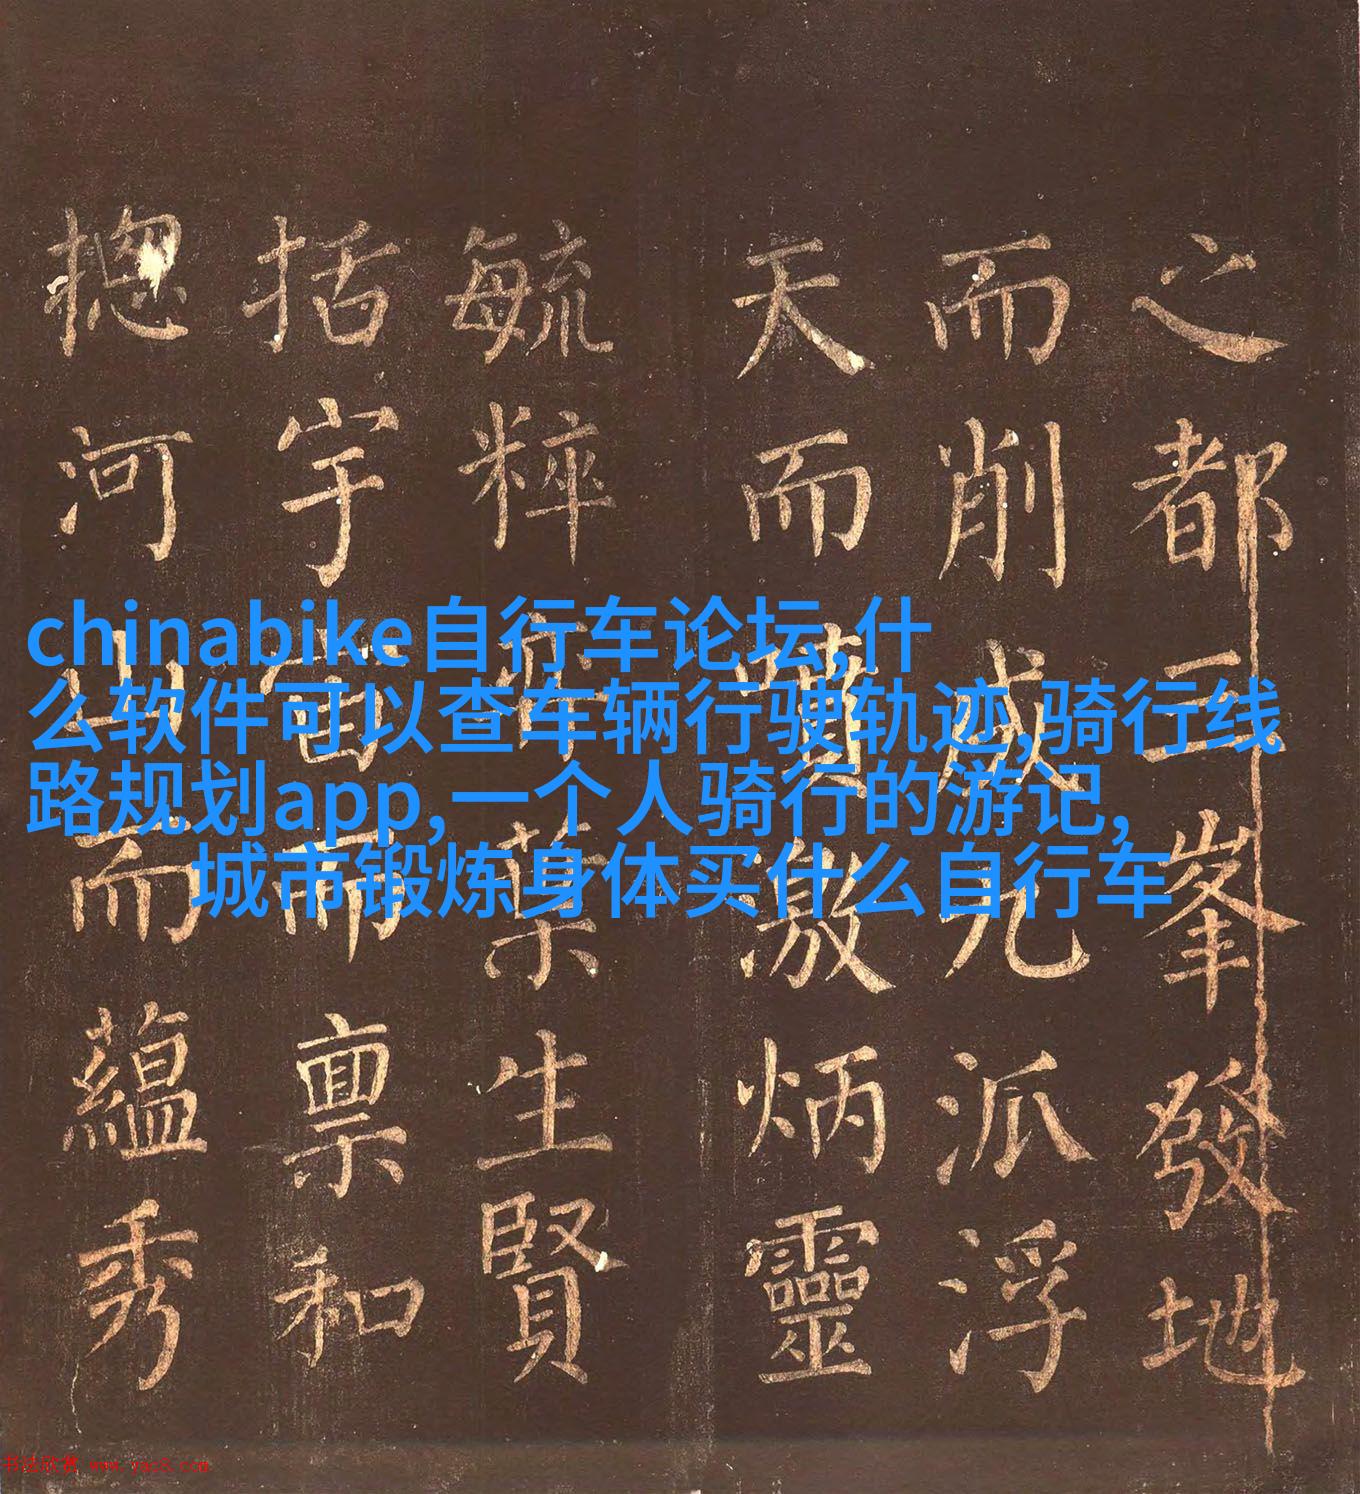 之都三峯發地
而削成九派浮
天而噴激炳靈
毓粹藥生賢
括宇宙而禀和
摠河山而蘊秀
chinabike自行车论坛,什
么软件可以查车辆行驶轨迹,骑行线
路规划app,一个人骑行的游记,
城市锻炼身体买什么自行车
书法欣赏 www.yac8.com